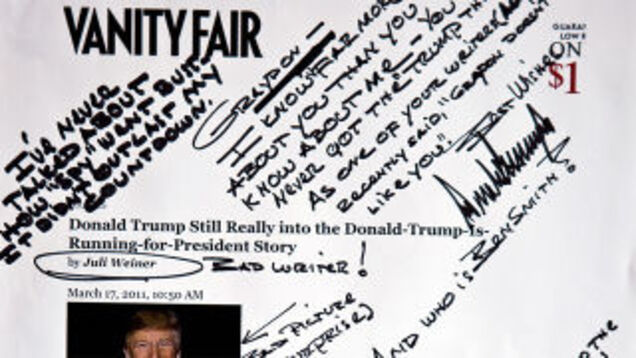 VANITY FAIR
LOW
ON
$1
I'VE NEVER
TALKED ABOUT BUT
NOW "SPY" WENT BUST
IT DIDN'T OUTLAST MY
COUNTDOWN.
GRAYDON —
I KNOW FAR MORE
ABOUT YOU THAN YOU
KNOW ABOUT ME — YOU
NEVER GOT THE "TRUMP TH
AS ONE OF YOUR WRITERS
RECENTLY SAID, "GRAYDON DOESN'T
LIKE YOU". BEST WISHES
Donald Trump Still Really into the Donald-Trump-Is-
Running-for-President Story
by Juli Weiner BAD WRITER!
March 17, 2011, 10:50 AM
BAD PICTURE
(SURPRISE)
AND WHO IS BEN SMITH?
THE